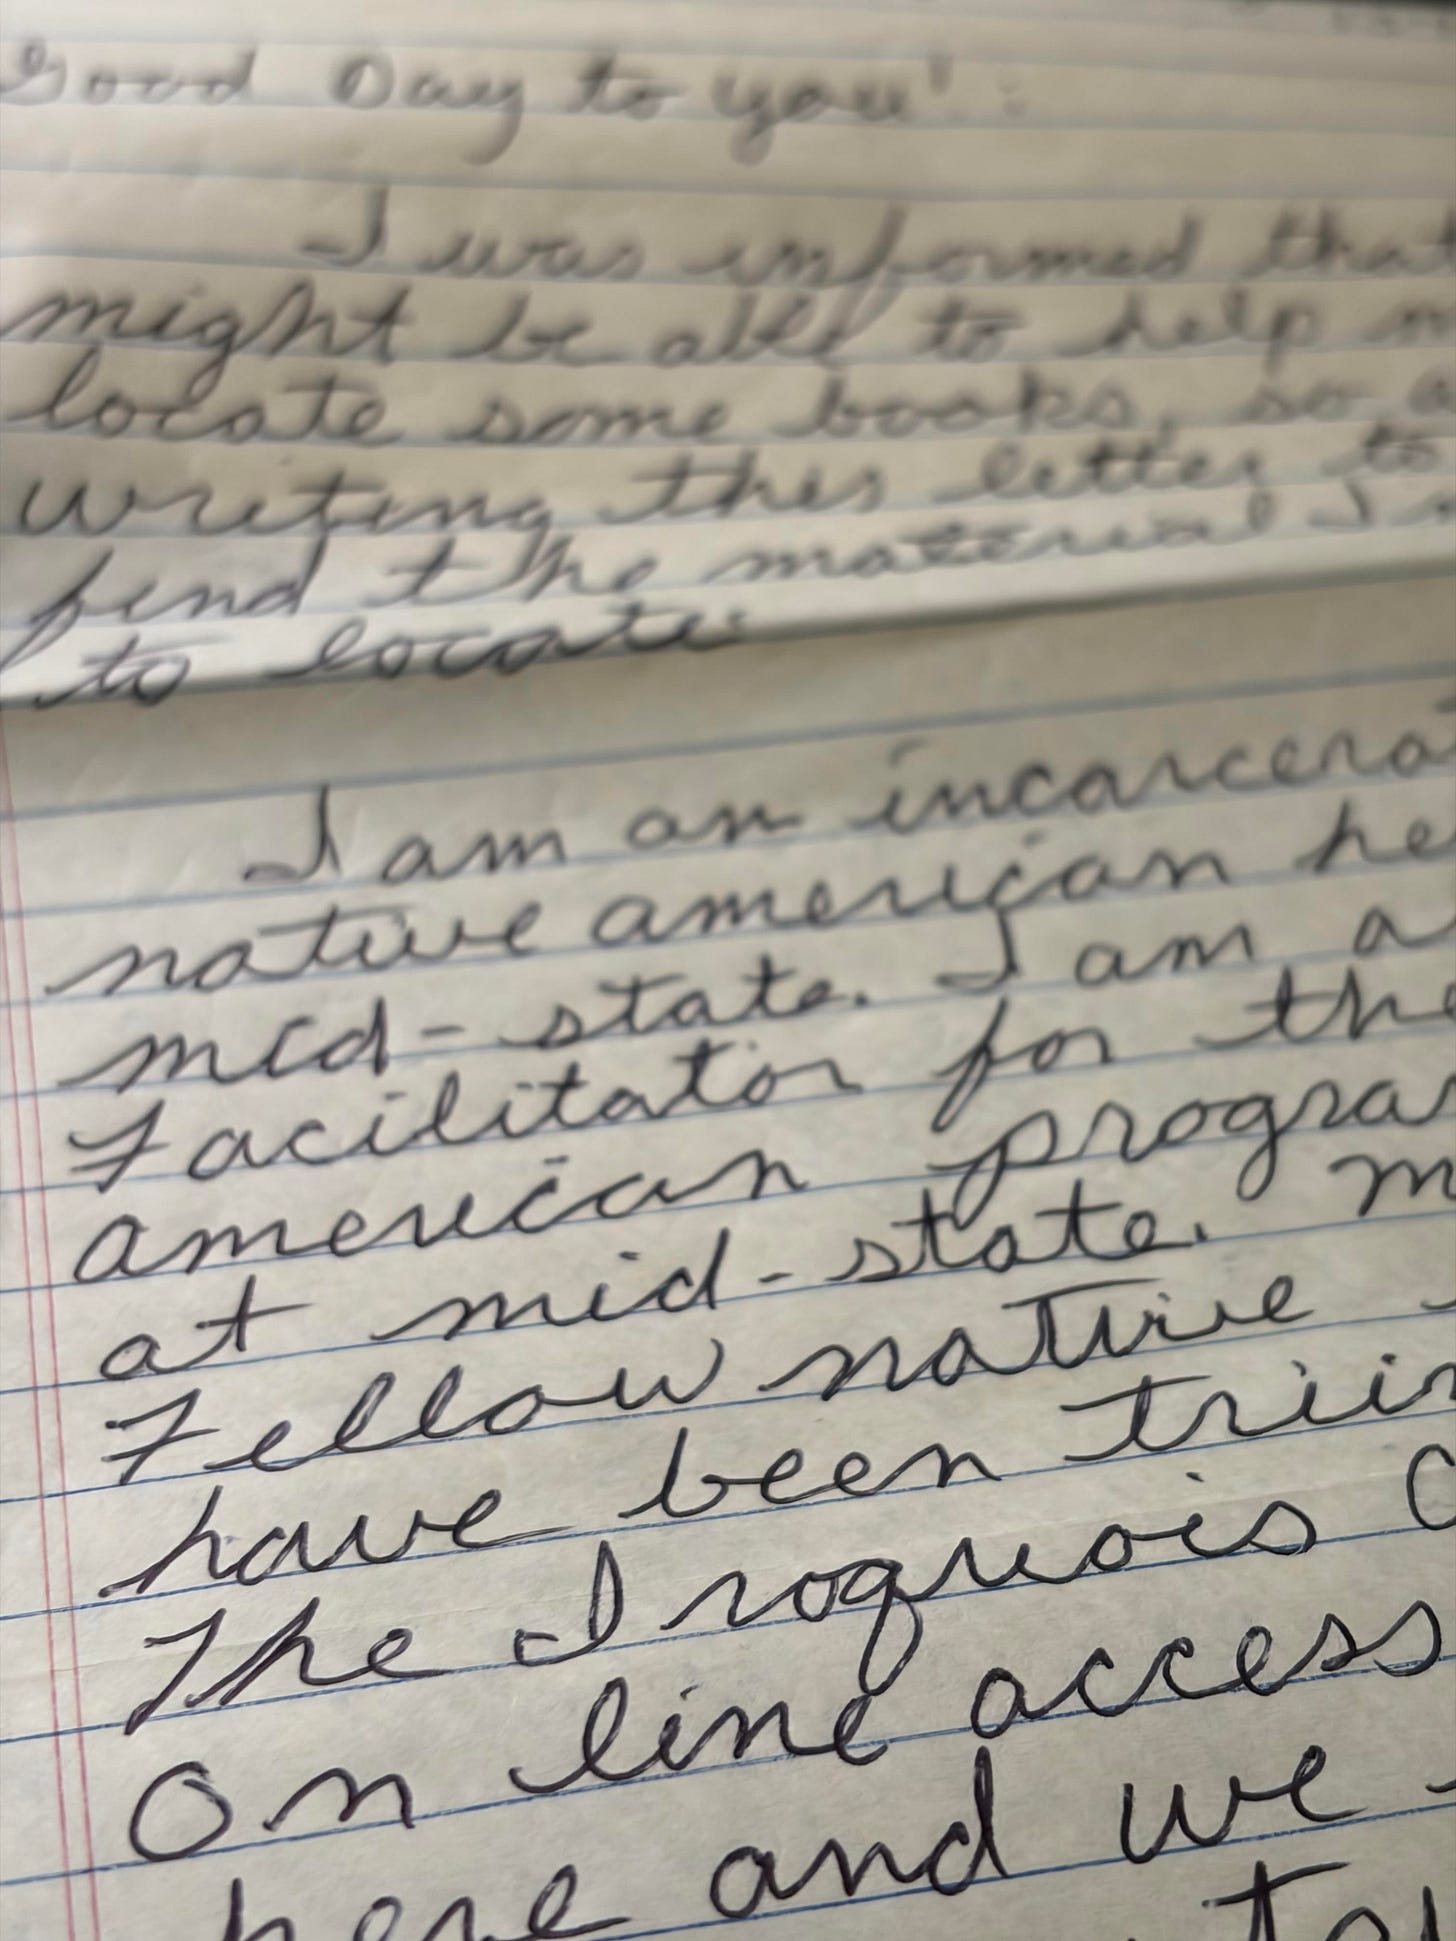 Good Day to you!:
I was informed that
might be able to help
locate some books, so
writing this letter to
find the material I
to locate.
I am an incarcerat
native american he
mid-state. I am a
Facilitator for the
american progra
at mid-state. m
Fellow native
have been triin
The Iroquois C
On line access
here and we